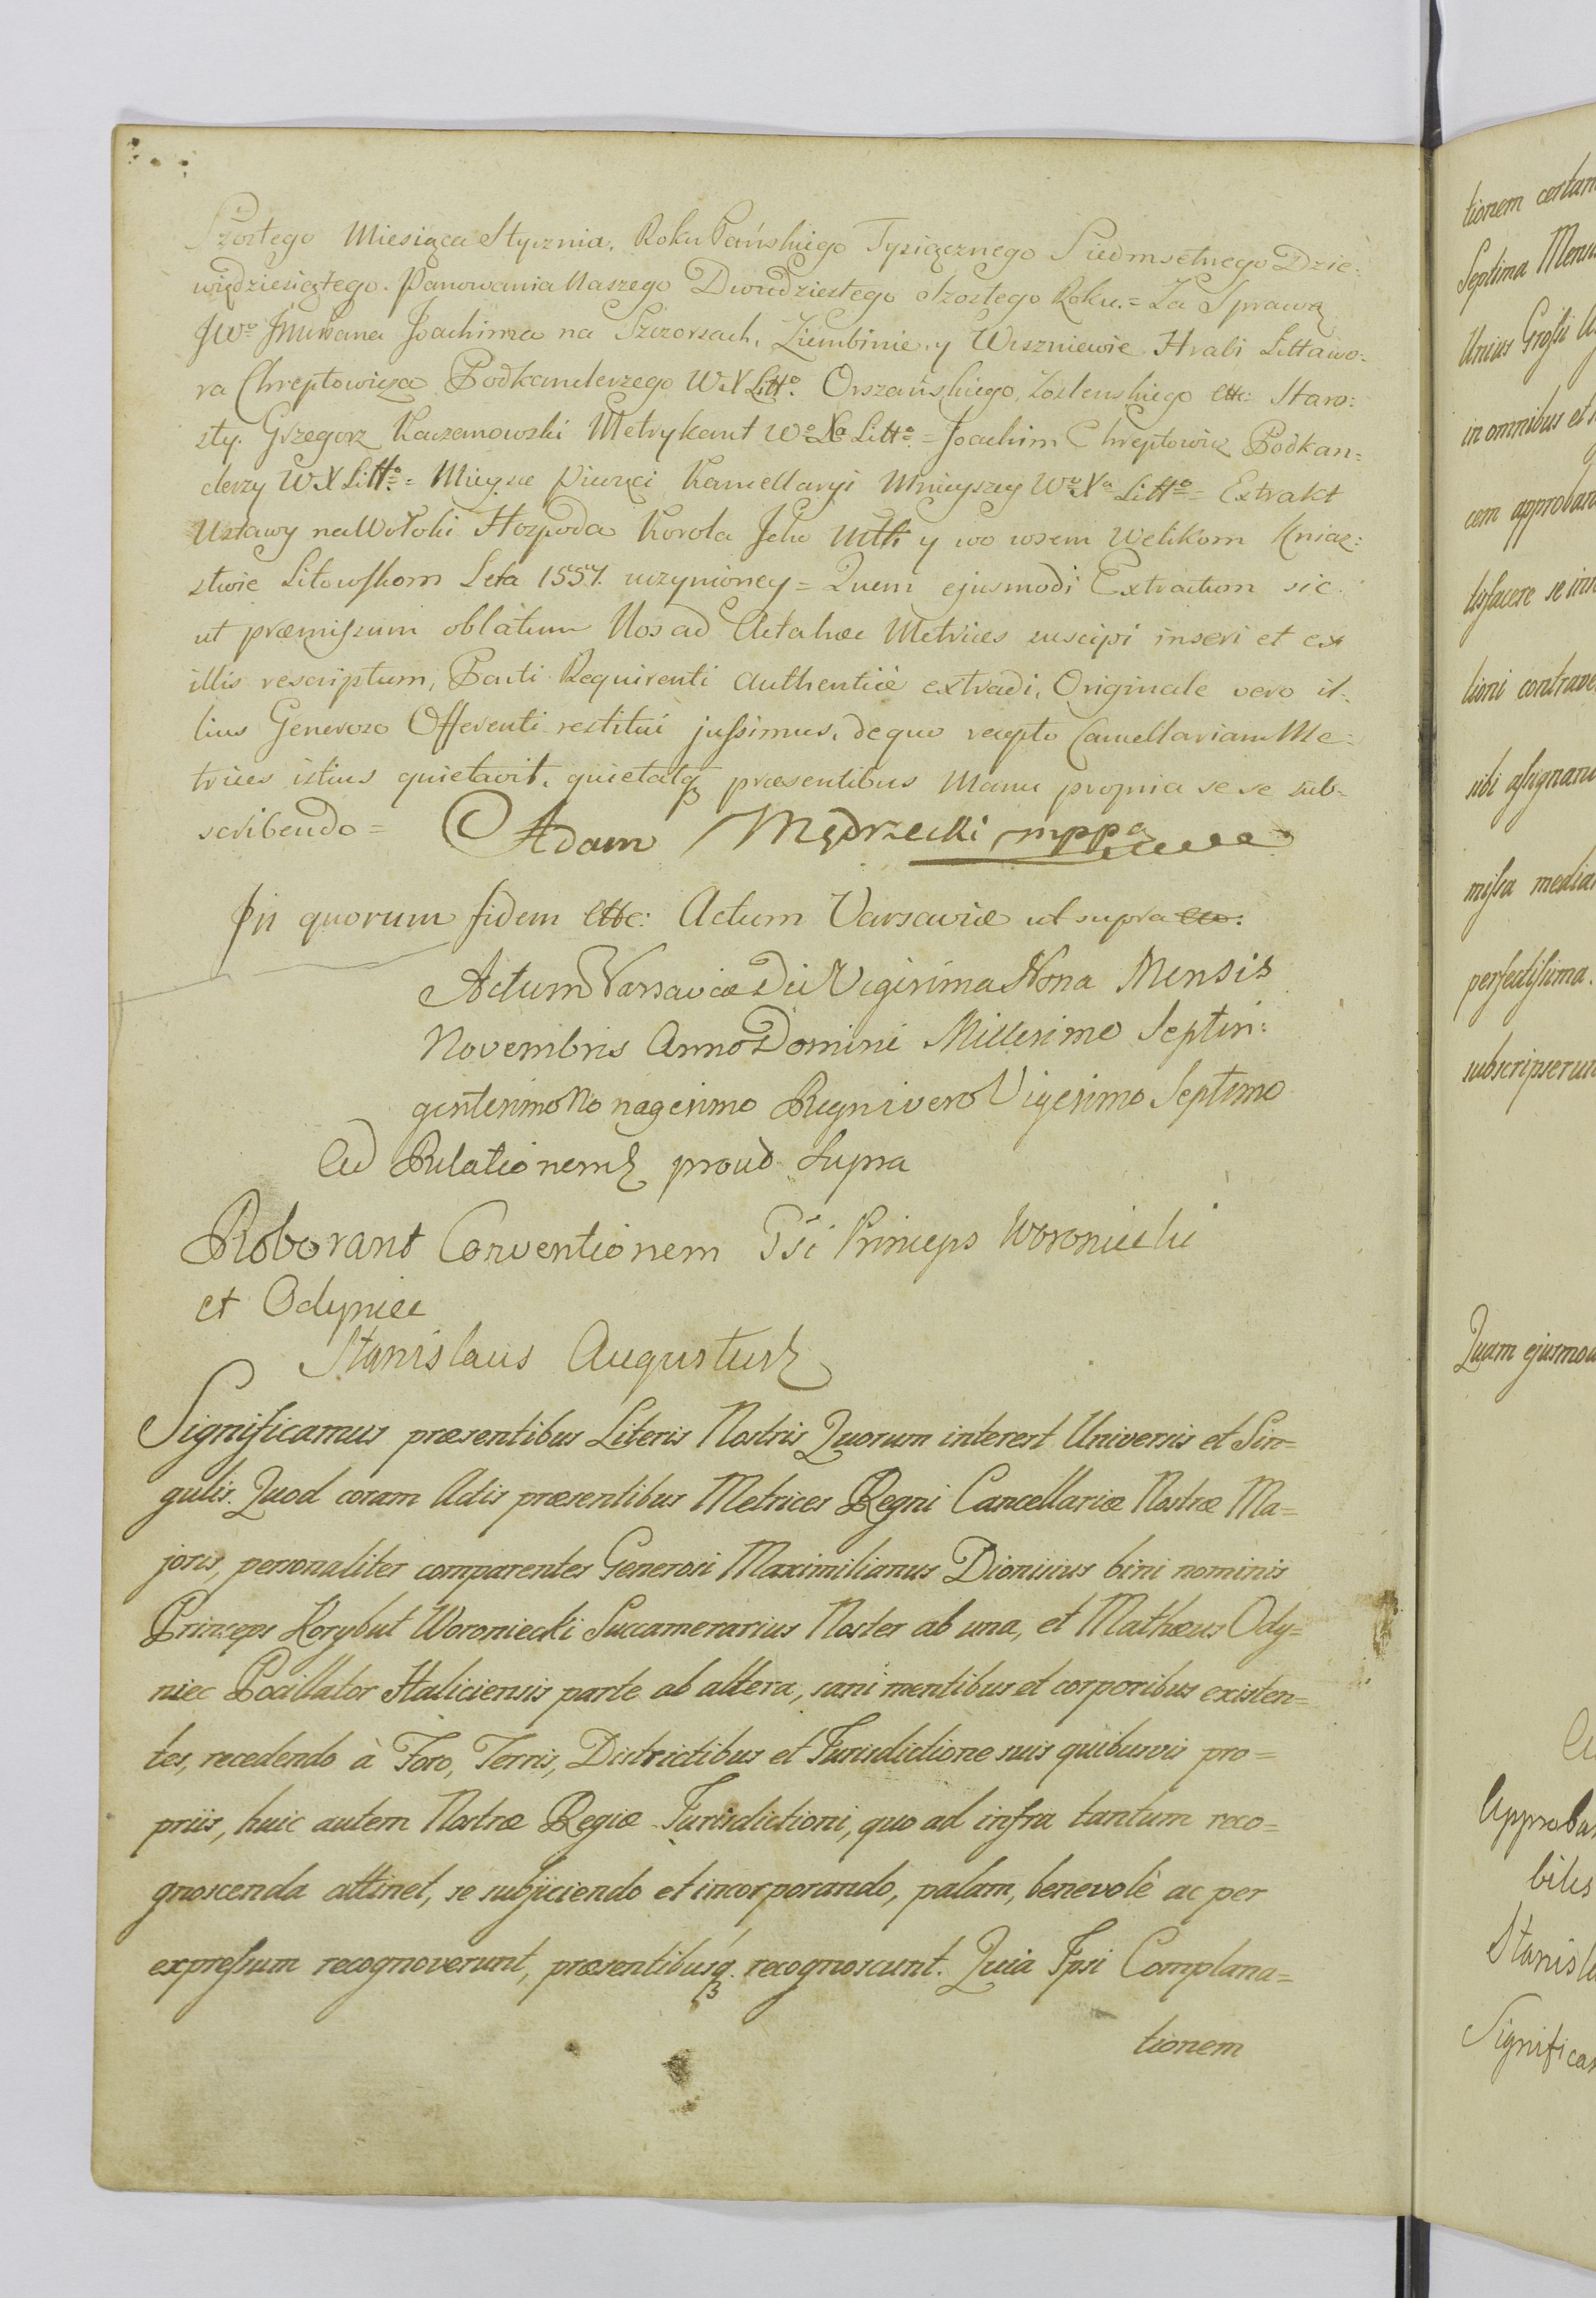 Szostego Miesiąca Stycznia. Roku Pańskiego Tysiącznego Siedmsetnego Dzie:
więdziesiątego. Panowania Naszego Dwudziestego szostego Roku. = Za Sprawą
JWo Jmci Pana Joachima na Szczorsach, Ziembinie, y Wiszniewie Hrabi Littawo:
ra Chreptowicza Podkanclerzego WXLitto. Orszańskiego, etc: Staro:
sty. Grzegorz Kaczanowski Metrykant Wo Xa Litto = Joachim Chreptowicz Podkan=
clerzy WX Litto = Mieysce Pieczęci Kancellaryi Mnieyszey Wo Xa Litto = Extrakt
Ustawy na Wołoki Hospoda Korola Jeho Mtti y wo wsem Welikom Kniaz:
stwie Litowskom Leta 1557. uczynioney = Quem ejusmodi Extractum sic
ut præmissum oblatum Nos ad Acta hæc Metrices suscipi inseri et ex
illis rescriptum, Parti Requirenti authenticè extradi, Originale vero il=
lius Generoso Offerenti restitui jussimus, de quo recepto Cancellariam Me=
trices istius quietavit, quietatq præsentibus Manu propria se se sub=
scribendo = Adam Mędrzecki mppa
In quorum fidem etc: Actum Varsaviæ ut supra etc:
Actum Varsaviæ Die Vigesima Nona Mensis
Novembris Anno Domini Millesimo Septin:
gentesimo Nonagesimo Regni vero Vigesimo Septimo
Ad Relationem proud Supra
Roborant Conventionem Gsi Princeps Woroniecki
et Odyniec
Stanislaus Augustus
Significamus præsentibus Literis Nostris Quorum interest Universis et Sin=
gulis. Quod coram Actis præsentibus Metrices Regni Cancellariæ Nostræ Ma=
joris, personaliter comparentes Generosi Maximilianus Dionisius bini nominis
Princeps Korybut Woroniecki Succamerarius Noster ab una, et Mathæus Ody=
niec Pocillator Haliciensis parte ab altera, sani mentibus et corporibus existen=
tes, recedendo à Foro, Terris, Districtibus et Jurisdictione suis quibusvis pro=
priis, huic autem Nostræ Regiæ Jurisdictioni, quo ad infra tantum reco=
gnoscenda attinet, se subjiciendo et incorporando, palam, benevolè ac per
expressum recognoverunt, præsentibusq. recognoscunt. Quia Ipsi Complana=
tionem
tionem certam
Septima Mens
Unius Grossi
in omnibus et
cem approban
tisfacere se
tioni contrave
sibi assignan
missa media
perfectissima.
subscripserun
Quam ejusmo
Approba
biles
Stanisla
Significa